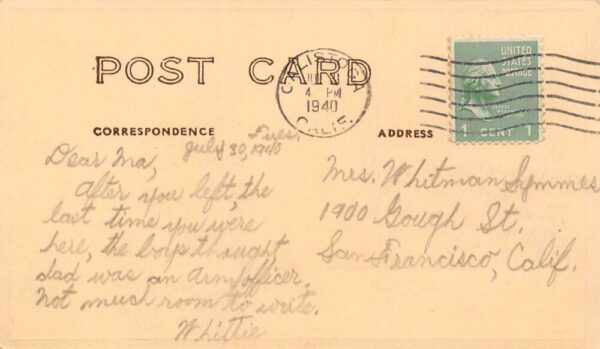 POST CARD
CALISTOGA
4 PM
1940
CALIF.
UNITED
STATES
POSTAGE
1 CENT 1
CORRESPONDENCE
ADDRESS
Tues,
July 30, 1940
Dear Ma,
After you left the
last time you were
here, the boys thought
dad was an Army officer.
Not much room to write.
Whittie
Mrs. Whitman Symmes
1900 Gough St.
San Francisco, Calif.